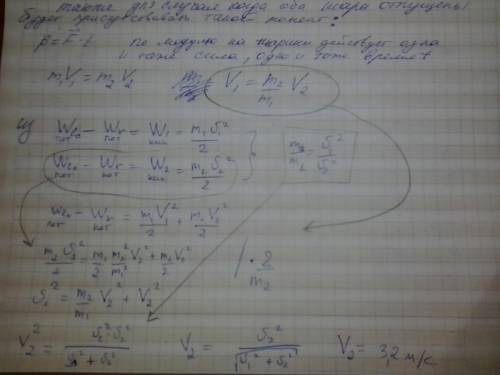 также для случая когда оба шара отпущены
будет присутствовать такой момент:
p = F · t по модулю на шарики действует одна
и таже сила, одно и тоже время t
m₁V₁ = m₂V₂ V₁ = m₂/m₁ V₂
W₁₀ пот − Wr пот = W₁ кин = m₁υ₁²/2
W₂₀ пот − Wr пот = W₂ кин = m₂υ₂²/2
m₂/m₁ = υ₁²/υ₂²
W₂₀ пот − Wr пот = m₁V₁²/2 + m₂V₂²/2
m₂υ₂²/2 = m₁/2 m₂²/m₁² V₂² + m₂V₂²/2 | · 2/m₂
υ₂² = m₂/m₁ V₂² + V₂²
V₂² = υ₂²·υ₂²/υ₁² + υ₂² V₂ = υ₂²/√υ₁² + υ₂² V₂ = 3,2 м/с